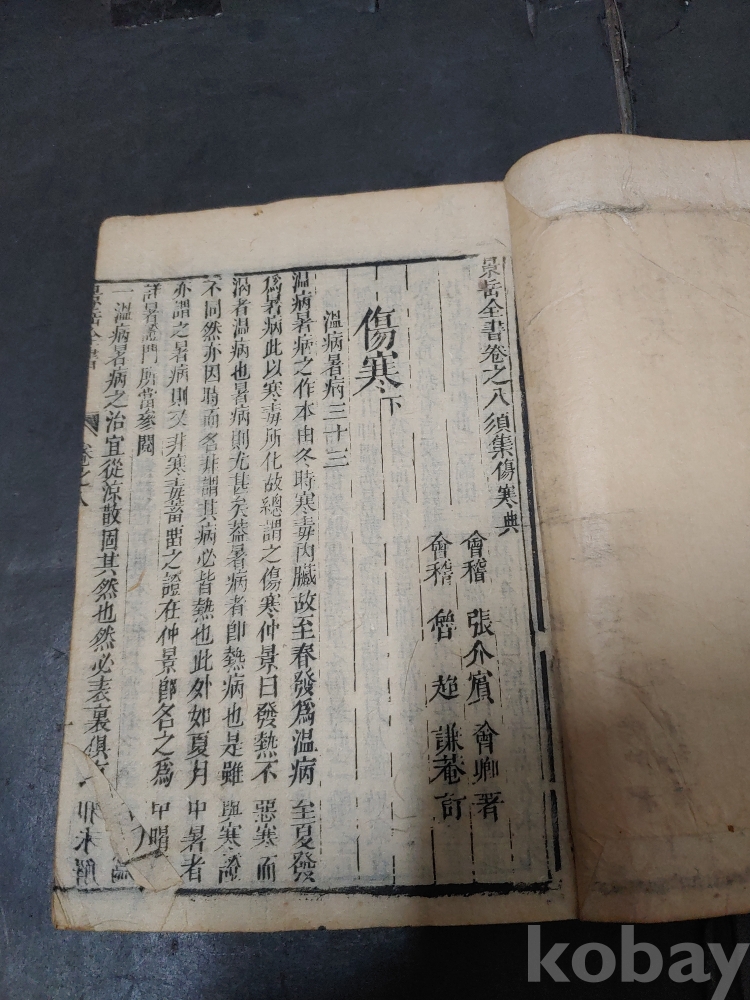 景岳全書卷之八須集傷寒典
會稽 張介賓 會卿 著
會稽 魯超 謙菴 訂
傷寒下
溫病暑病三十三
溫病暑病之作本由冬時寒毒內臟故至春發爲溫病至夏發
爲暑病此以寒毒所化故總謂之傷寒仲景曰發熱不惡寒而
渴者温病也暑病則尤甚矣葢暑病者卽熱病也是雖與寒證
不同然亦因時而名非謂其病必皆熱也此外如夏月中暑者
亦謂之暑病則又非寒毒蓄畱之證在仲景卽名之爲中暍
詳暑證門所當參閱
一溫病暑病之治宜從涼散固其然也然必表裏俱
和未解
景岳全書 卷之八
kobay